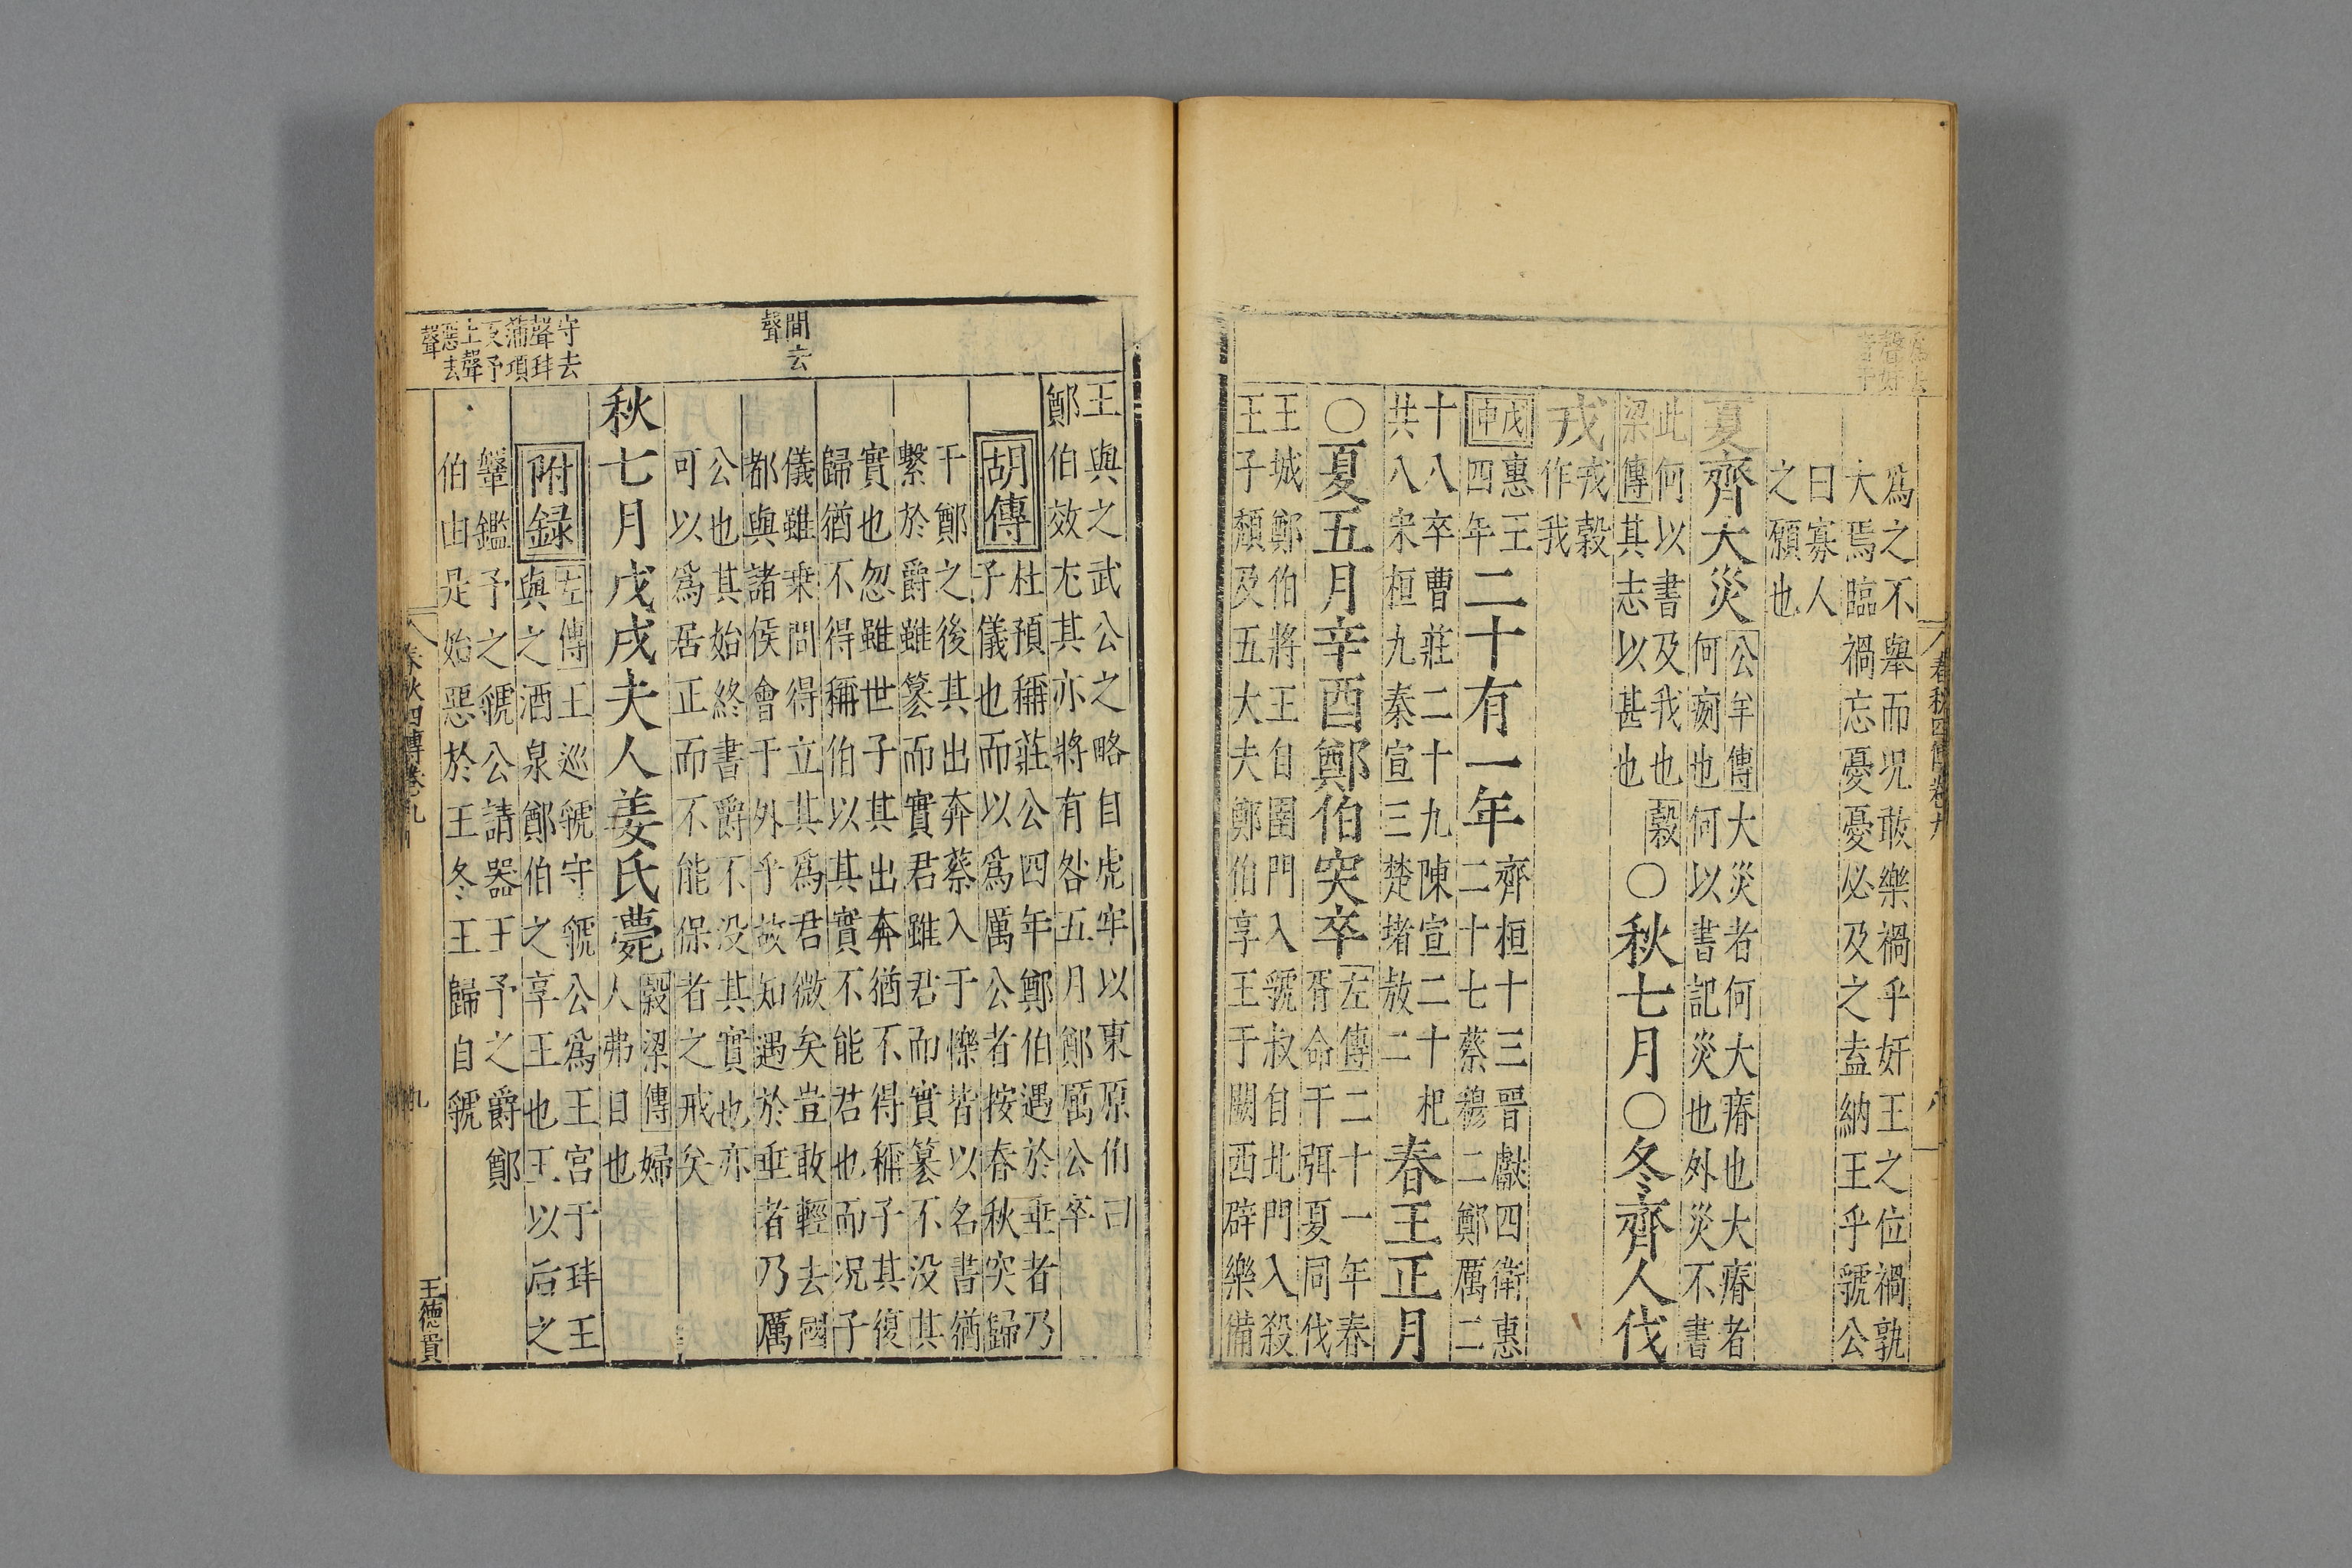 爲之不舉而況敢樂禍乎奸王之位禍孰
大焉臨禍忘憂憂必及之盍納王乎虢公
曰寡人
之願也
夏齊大災
公羊傳大災者何大瘠也大瘠者
何㾐也何以書記災也外災不書
此何以書及我也穀
梁傳其志以甚也
○秋七月○冬齊人伐
戎
戎穀
作我
戊申
惠王
四年
二十有一年
齊桓十三晉獻四衛惠
二十七蔡穆二鄭厲二
十八卒曹莊二十九陳宣二十杞
共八宋桓九秦宣三楚堵敖二
春王正月
○夏五月辛酉鄭伯突卒
左傳二十一年春
胥命于弭夏同伐
王城鄭伯將王自圉門入虢叔自北門入殺
王子頹及五大夫鄭伯享王于闕西辟樂備
春秋四傳卷九
八
間去
聲
守去
聲玤
蒲項
反予
上聲
惡去
聲
王與之武公之略自虎牢以東原伯曰
鄭伯效尤其亦將有咎五月鄭厲公卒
胡傳
杜預稱莊公四年鄭伯遇於垂者乃
子儀也而以爲厲公者按春秋突歸
于鄭之後其出奔蔡入于櫟皆以名書猶
繫於爵雖篡而實君雖君而實篡不没其
實也忽雖世子其出奔猶不得稱子其復
歸猶不得稱伯以其實不能君也而况子
儀雖乗間得立其爲君微矣豈敢輕去國
都與諸侯會于外乎故知遇於垂者乃厲
公也其始終書爵不没其實也亦
可以爲居正而不能保者之戒矣
秋七月戊戌夫人姜氏薨
穀梁傳婦
人弗目也
附録
左傳王巡虢守虢公爲王宮于玤王
與之酒泉鄭伯之享王也王以后之
鞶鑑予之虢公請器王予之爵鄭
伯由是始惡於王冬王歸自虢
春秋四傳卷九
九
王德貫